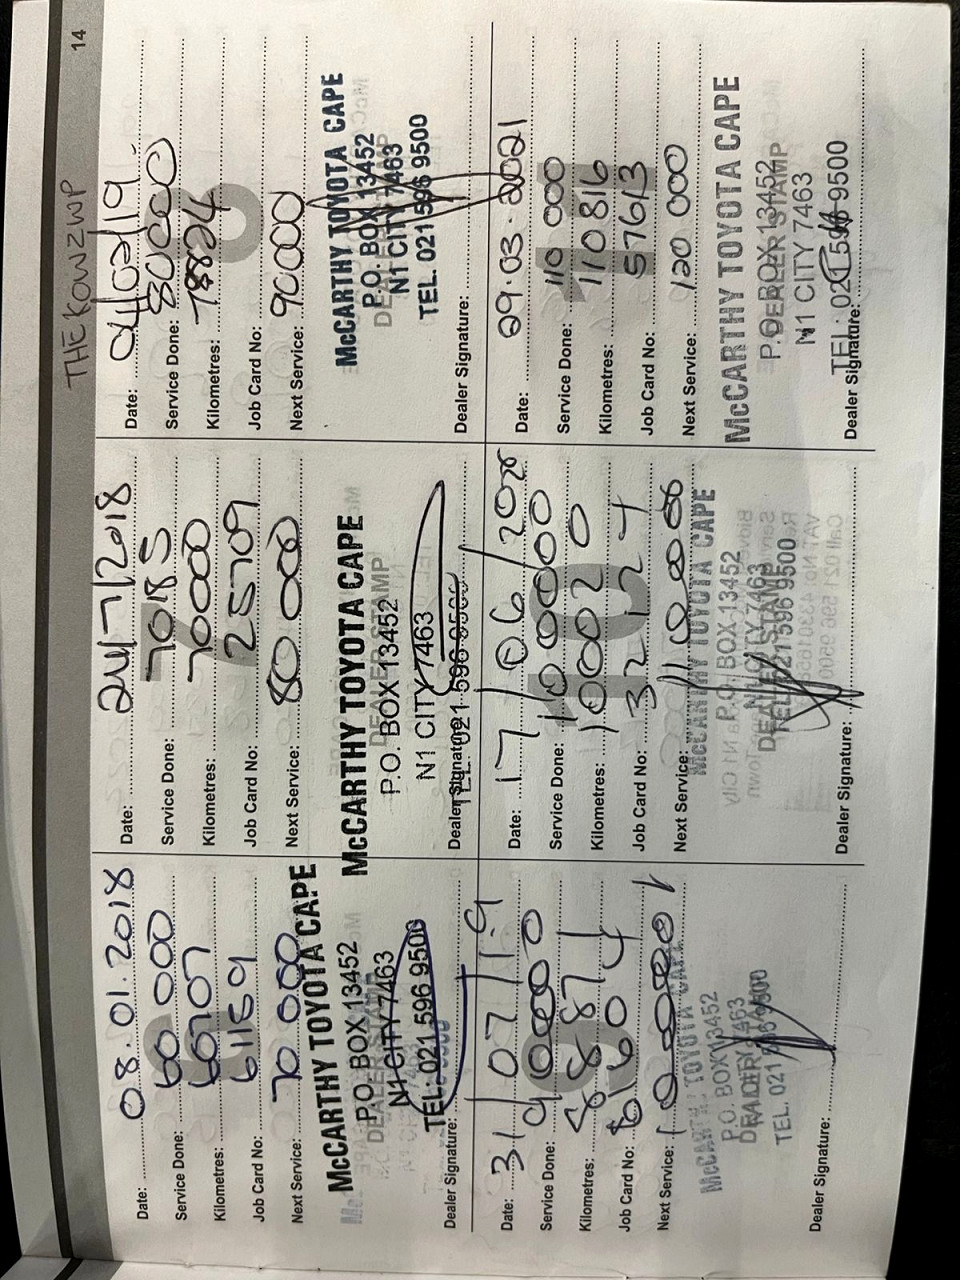 14
THEKOWZWP
6
Date: 08.01.2018
Service Done: 60 000
Kilometres: 60707
Job Card No: 61159
Next Service: 70 000
DEALER STAMP
McCARTHY TOYOTA CAPE
P.O. BOX 13452
N1 CITY 7463
TEL: 021 596 9500
Dealer Signature:
7
Date: 24/7/2018
Service Done: 70RS
Kilometres: 70000
Job Card No: 25709
Next Service: 80 000
DEALER STAMP
McCARTHY TOYOTA CAPE
P.O. BOX 13452
N1 CITY 7463
TEL: 021 596 9500
Dealer Signature:
8
Date: 04/02/19
Service Done: 80000
Kilometres: 78824
Job Card No:
Next Service: 90000
DEALER STAMP
McCARTHY TOYOTA CAPE
P.O. BOX 13452
N1 CITY 7463
TEL. 021 596 9500
Dealer Signature:
9
Date: 31/07/19
Service Done: 90000
Kilometres: 88871
Job Card No:
Next Service:
DEALER STAMP
McCARTHY TOYOTA CAPE
P.O. BOX 13452
N1 CITY 7463
TEL. 021 596 9500
Dealer Signature:
10
Date: 17/06/2020
Service Done: 100000
Kilometres: 100020
Job Card No:
Next Service: 110000
DEALER STAMP
McCARTHY TOYOTA CAPE
P.O. BOX 13452
N1 CITY 7463
TEL. 021 596 9500
Dealer Signature:
11
Date: 29.03.2021
Service Done: 110 000
Kilometres: 110816
Job Card No: 57613
Next Service: 120 000
DEALER STAMP
McCARTHY TOYOTA CAPE
P.O. BOX 13452
N1 CITY 7463
TEL: 021 596 9500
Dealer Signature: